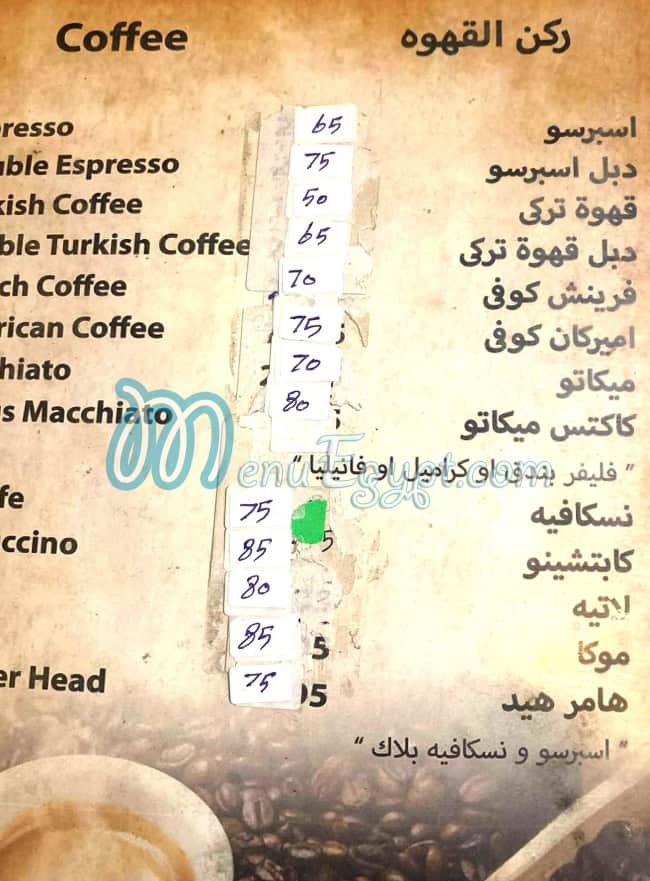 Coffee ركن القهوه
resso 65 اسبرسو
uble Espresso 75 دبل اسبرسو
kish Coffee 50 قهوة تركى
ble Turkish Coffee 65 دبل قهوة تركى
ch Coffee 70 فرينش كوفى
rican Coffee 75 اميركان كوفى
hiato 70 ميكاتو
us Macchiato 80 كاكتس ميكاتو
" فليفر بندق او كراميل او فانيليا "
MenuEgypt.com
fe 75 نسكافيه
ccino 85 5 كابتشينو
80 لاتيه
85 5 موكا
er Head 75 95 هامر هيد
" اسبرسو و نسكافيه بلاك "